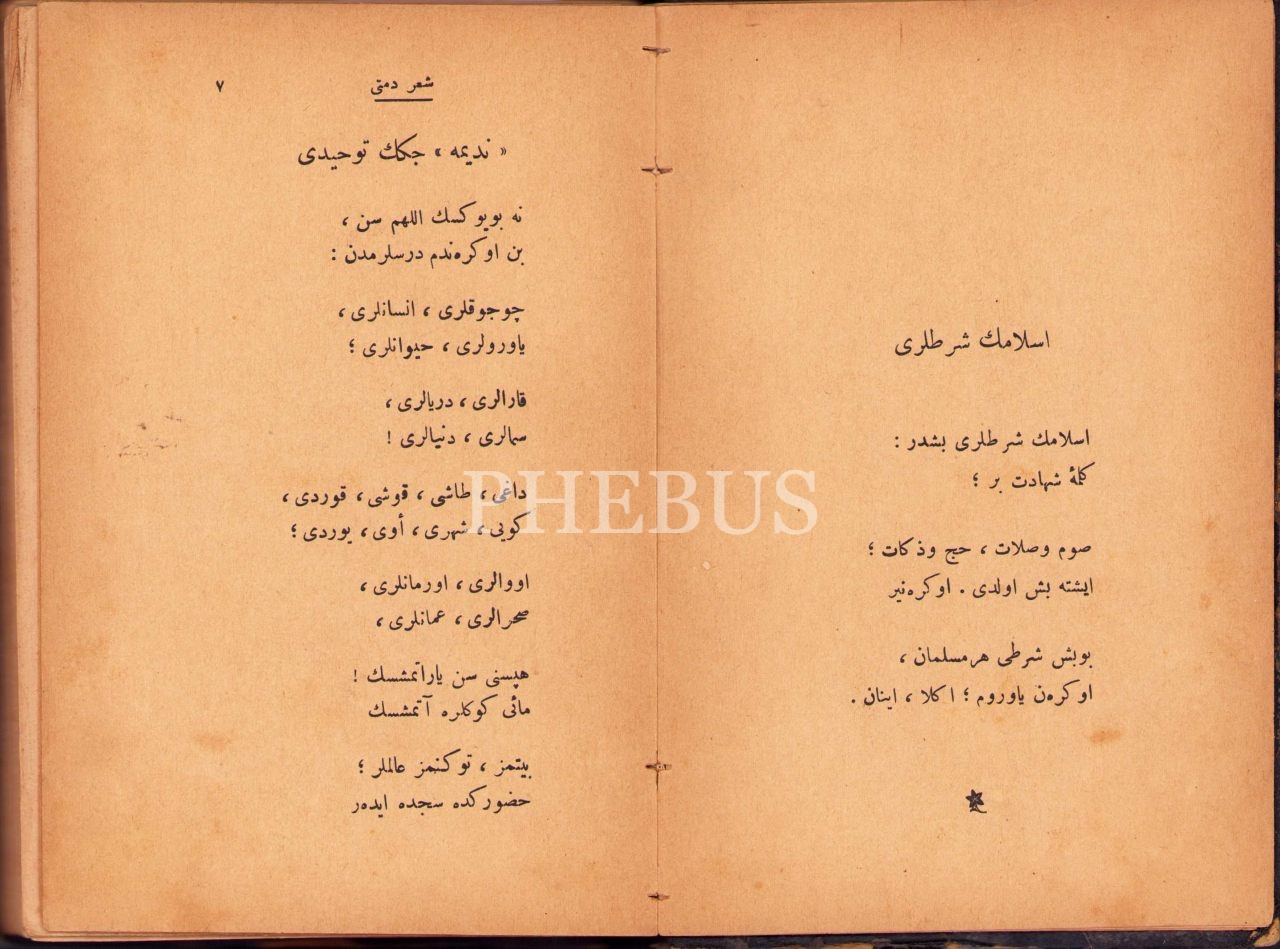 اسلامك شرطلری
اسلامك شرطلری بشدر :
كلمهٔ شهادت بر ؛
صوم وصلات ، حج وذكات ؛
ایشته بش اولدی . اوكره‌نیر
بوبش شرطی هرمسلمان ،
اوكره‌ن یاوروم ؛ اكلا ، اینان .
شعر دمتی
٧
« ندیمه » جكك توحیدی
نه بویوكسك اللهم سن ،
بن اوكره‌ندم درسلرمدن :
چوجوقلری ، انسانلری ،
یاورولری ، حیوانلری ؛
قارالری ، دریالری ،
سمالری ، دنیالری !
داغی ، طاشی ، قوشی ، قوردی ،
كویی ، شهری ، أوی ، یوردی ؛
اووالری ، اورمانلری ،
صحرالری ، عمانلری ،
هپسنی سن یاراتمشسك !
مائی كوكلره آتمشسك
بیتمز ، توكنمز عالملر ؛
حضوركده سجده ایده‌ر
PHEBUS